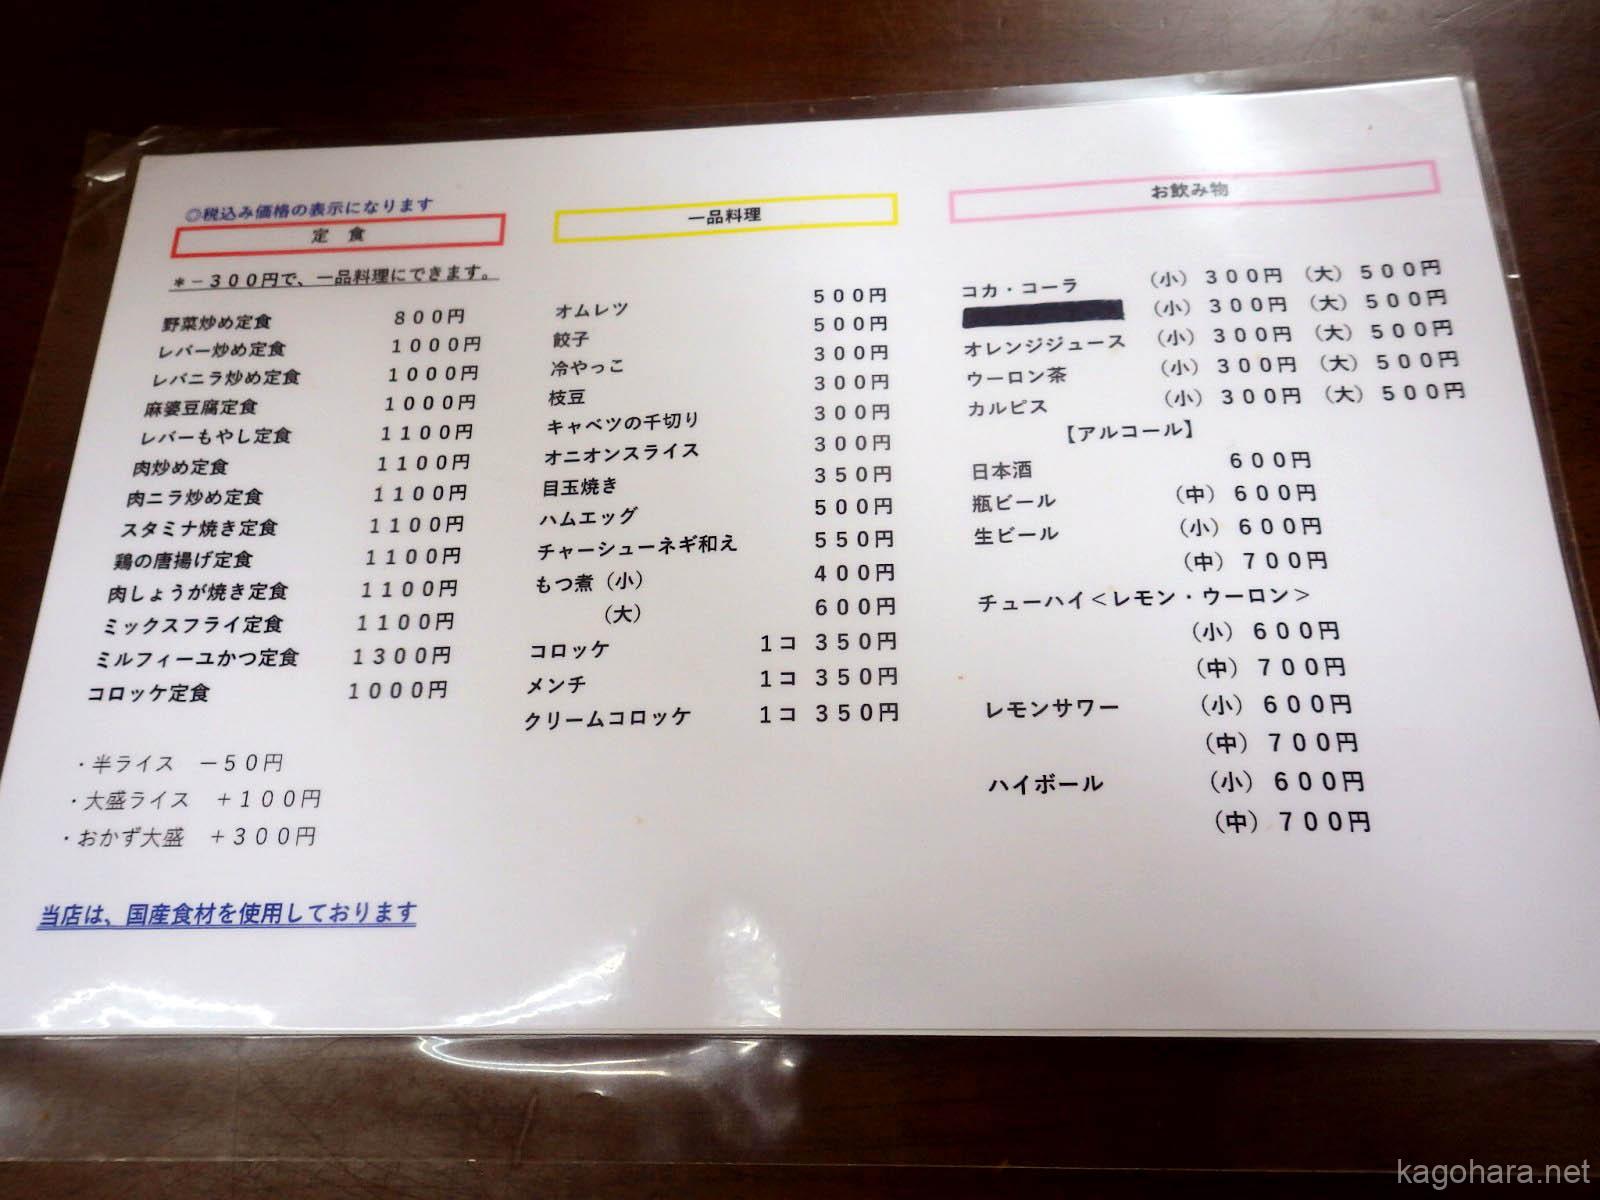 ◎税込み価格の表示になります
定 食
＊－３００円で、一品料理にできます。
野菜炒め定食 ８００円
レバー炒め定食 １０００円
レバニラ炒め定食 １０００円
麻婆豆腐定食 １０００円
レバーもやし定食 １１００円
肉炒め定食 １１００円
肉ニラ炒め定食 １１００円
スタミナ焼き定食 １１００円
鶏の唐揚げ定食 １１００円
肉しょうが焼き定食 １１００円
ミックスフライ定食 １１００円
ミルフィーユかつ定食 １３００円
コロッケ定食 １０００円
・半ライス －５０円
・大盛ライス ＋１００円
・おかず大盛 ＋３００円
当店は、国産食材を使用しております
一品料理
オムレツ ５００円
餃子 ５００円
冷やっこ ３００円
枝豆 ３００円
キャベツの千切り ３００円
オニオンスライス ３００円
目玉焼き ３５０円
ハムエッグ ５００円
チャーシューネギ和え ５５０円
もつ煮（小） ４００円
（大） ６００円
コロッケ １コ ３５０円
メンチ １コ ３５０円
クリームコロッケ １コ ３５０円
お飲み物
コカ・コーラ （小）３００円 （大）５００円
（小）３００円 （大）５００円
オレンジジュース （小）３００円 （大）５００円
ウーロン茶 （小）３００円 （大）５００円
カルピス （小）３００円 （大）５００円
【アルコール】
日本酒 ６００円
瓶ビール （中）６００円
生ビール （小）６００円
（中）７００円
チューハイ＜レモン・ウーロン＞
（小）６００円
（中）７００円
レモンサワー （小）６００円
（中）７００円
ハイボール （小）６００円
（中）７００円
kagohara.net